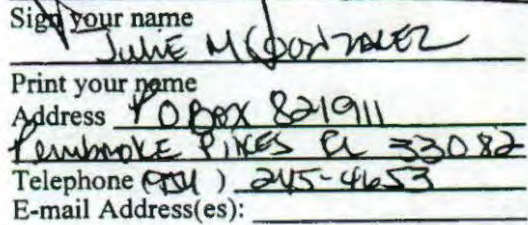 Sign your name
JULIE M GONZALEZ
Print your name
Address P O BOX 821911
PEMBROKE PINES FL 33082
Telephone (954) 245-4653
E-mail Address(es):